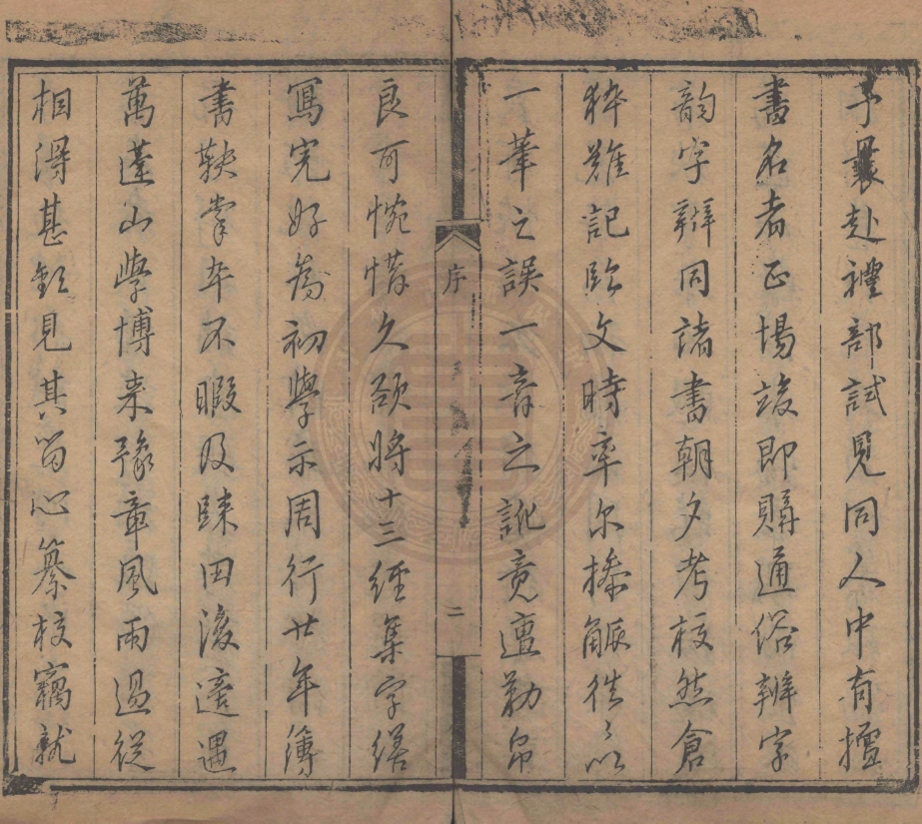 予曩赴禮部試見同人中有擅
書名者正場竣即購通俗辨字
韵字辨同諸書朝夕考校然倉
猝難記臨文時率尔操觚往々以
一筆之誤一音之訛竟遭勒帛
序 二
良可惋惜久欲將十三經集字繕
寫完好為初學示周行廿年簿
書鞅掌卒不暇及歸田後適遇
萬蓬山學博来豫章風雨過從
相得甚歡見其留心纂校竊就